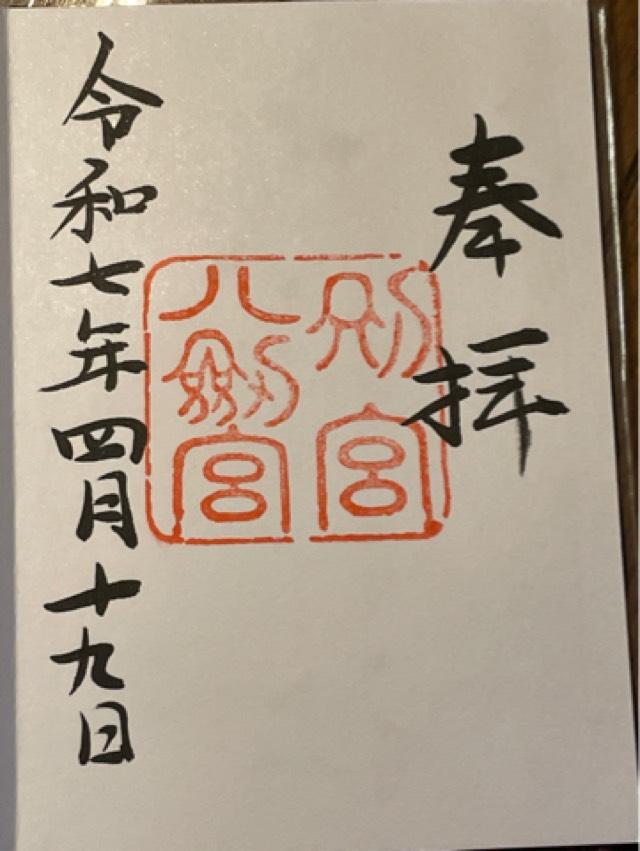 奉拝
別宮
八剱宮
令和七年四月十九日